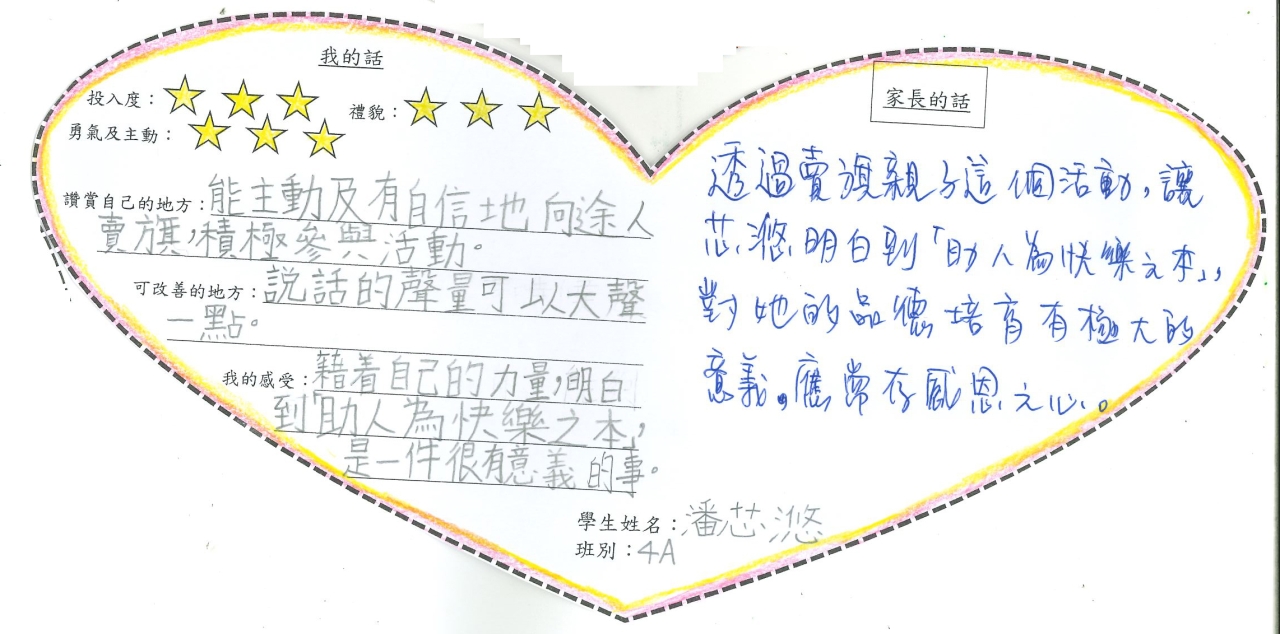 我的話
投入度：
禮貌：
勇氣及主動：
讚賞自己的地方：能主動及有自信地向途人
賣旗，積極參與活動。
可改善的地方：説話的聲量可以大聲
一點。
我的感受：藉着自己的力量，明白
到「助人為快樂之本」，
是一件很有意義的事。
家長的話
透過賣旗親子這個活動，讓
芯滺明白到「助人為快樂之本」，
對她的品德培育有極大的
意義。應常存感恩之心。
學生姓名：潘芯滺
班別：4A